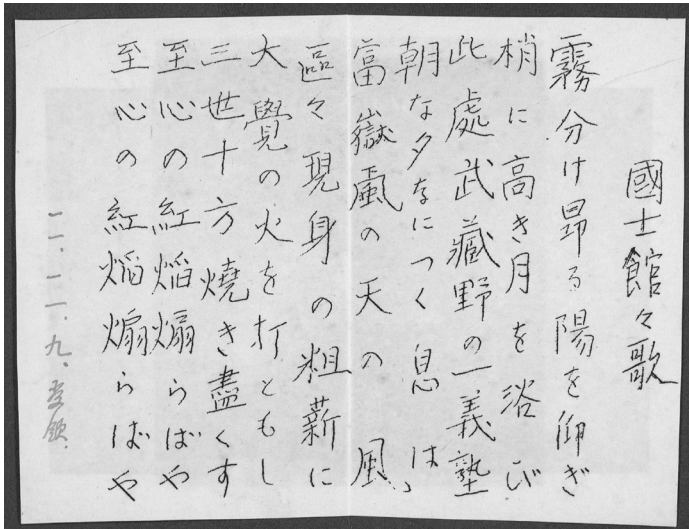 國士館々歌
霧分け昴る陽を仰ぎ
梢に高き月を浴び
此處武藏野の一義塾
朝な夕なにつく息は、
富嶽颪の天の風
區々現身の粗薪に
大覺の火を打ともし
三世十方燒き盡くす
至心の紅焔煽らばや
至心の紅焔煽らばや
一一、一一、九、